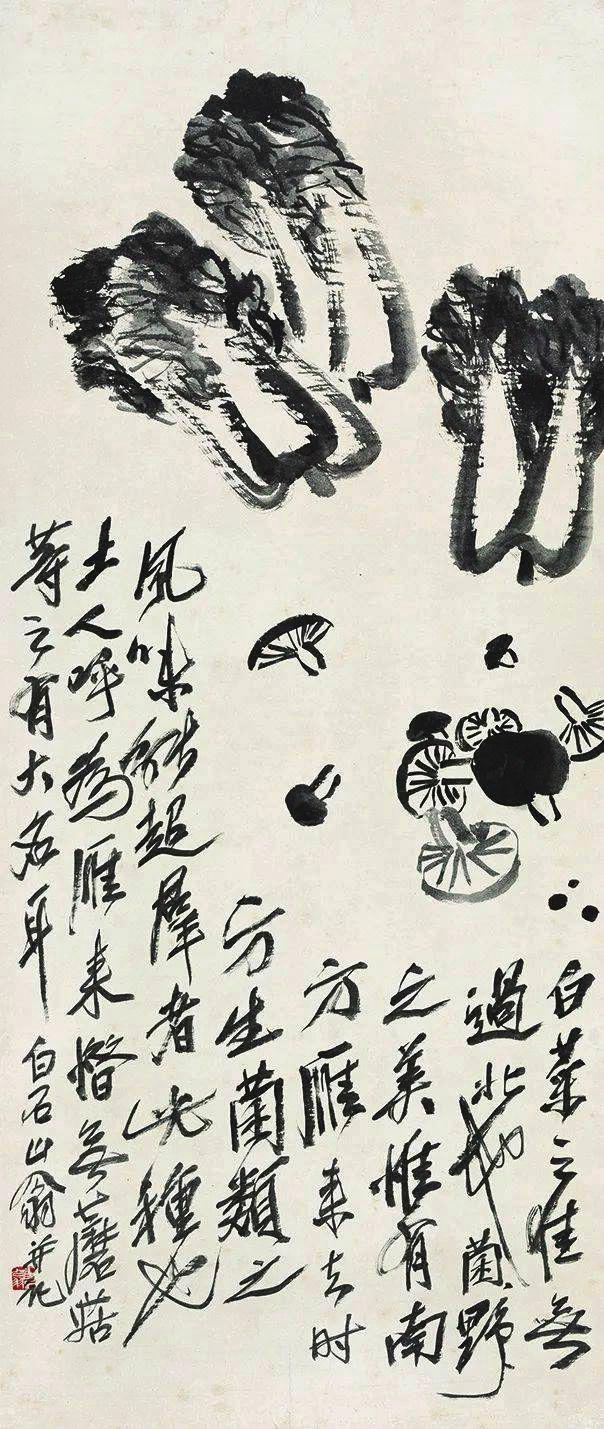 白菜之佳無
過北地菌野
之美惟有南
方雁来去时
方生菌類之
風味能超羣者此種也
土人呼為雁来惜無蘑菇
等之有大名耳 白石山翁并记